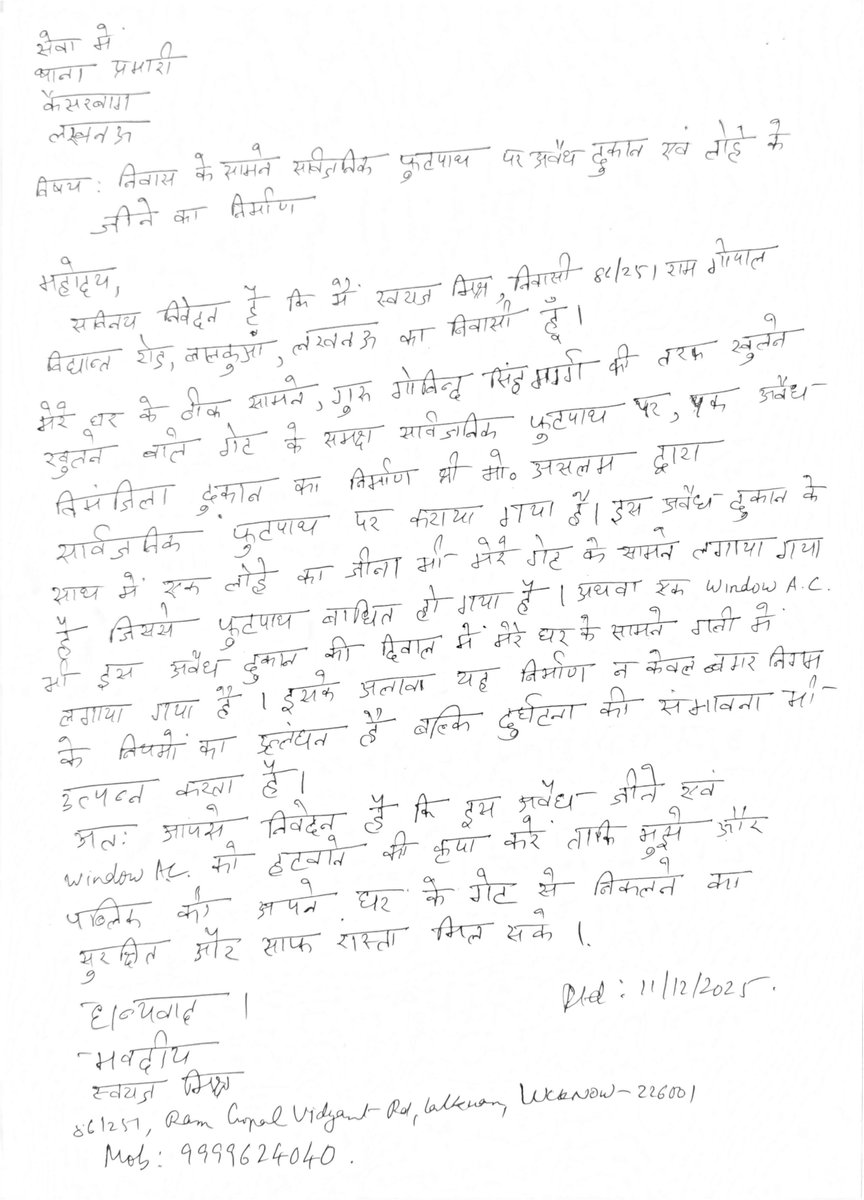 सेवा में
थाना प्रभारी
कैसरबाग
लखनऊ
विषय : निवास के सामने सार्वजनिक फुटपाथ पर अवैध दुकान एवं लोहे के
जीने का निर्माण
महोदय,
सविनय निवेदन है कि मैं स्वयज मिश्र, निवासी 86/251 राम गोपाल
विद्यान्त रोड, लालकुआं, लखनऊ का निवासी हूँ।
मेरे घर के ठीक सामने, गुरु गोविन्द सिंह मार्ग की तरफ खुलने
खुलने वाले गेट के समक्ष सार्वजनिक फुटपाथ पर, एक अवैध
तिमंजिला दुकान का निर्माण श्री मो० असलम द्वारा
सार्वजनिक फुटपाथ पर कराया गया है। इस अवैध दुकान के
साथ में एक लोहे का जीना भी मेरे गेट के सामने लगाया गया
है जिससे फुटपाथ बाधित हो गया है। अथवा एक Window A.C.
भी इस अवैध दुकान की दिवाल में मेरे घर के सामने गली में
लगाया गया है। इसके अलावा यह निर्माण न केवल नगर निगम
के नियमों का उल्लंघन है बल्कि दुर्घटना की संभावना भी
उत्पन्न करता है।
अतः आपसे निवेदन है कि इस अवैध जीने एवं
Window A.C. को हटवाने की कृपा करें ताकि मुझे और
पब्लिक को अपने घर के गेट से निकलने का
सुरक्षित और साफ रास्ता मिल सके।
धन्यवाद।
Dtd : 11/12/2025.
भवदीय
स्वयज मिश्र
86/251, Ram Gopal Vidyant Rd, Lalkuan, LUCKNOW-226001
Mob: 9999624040.